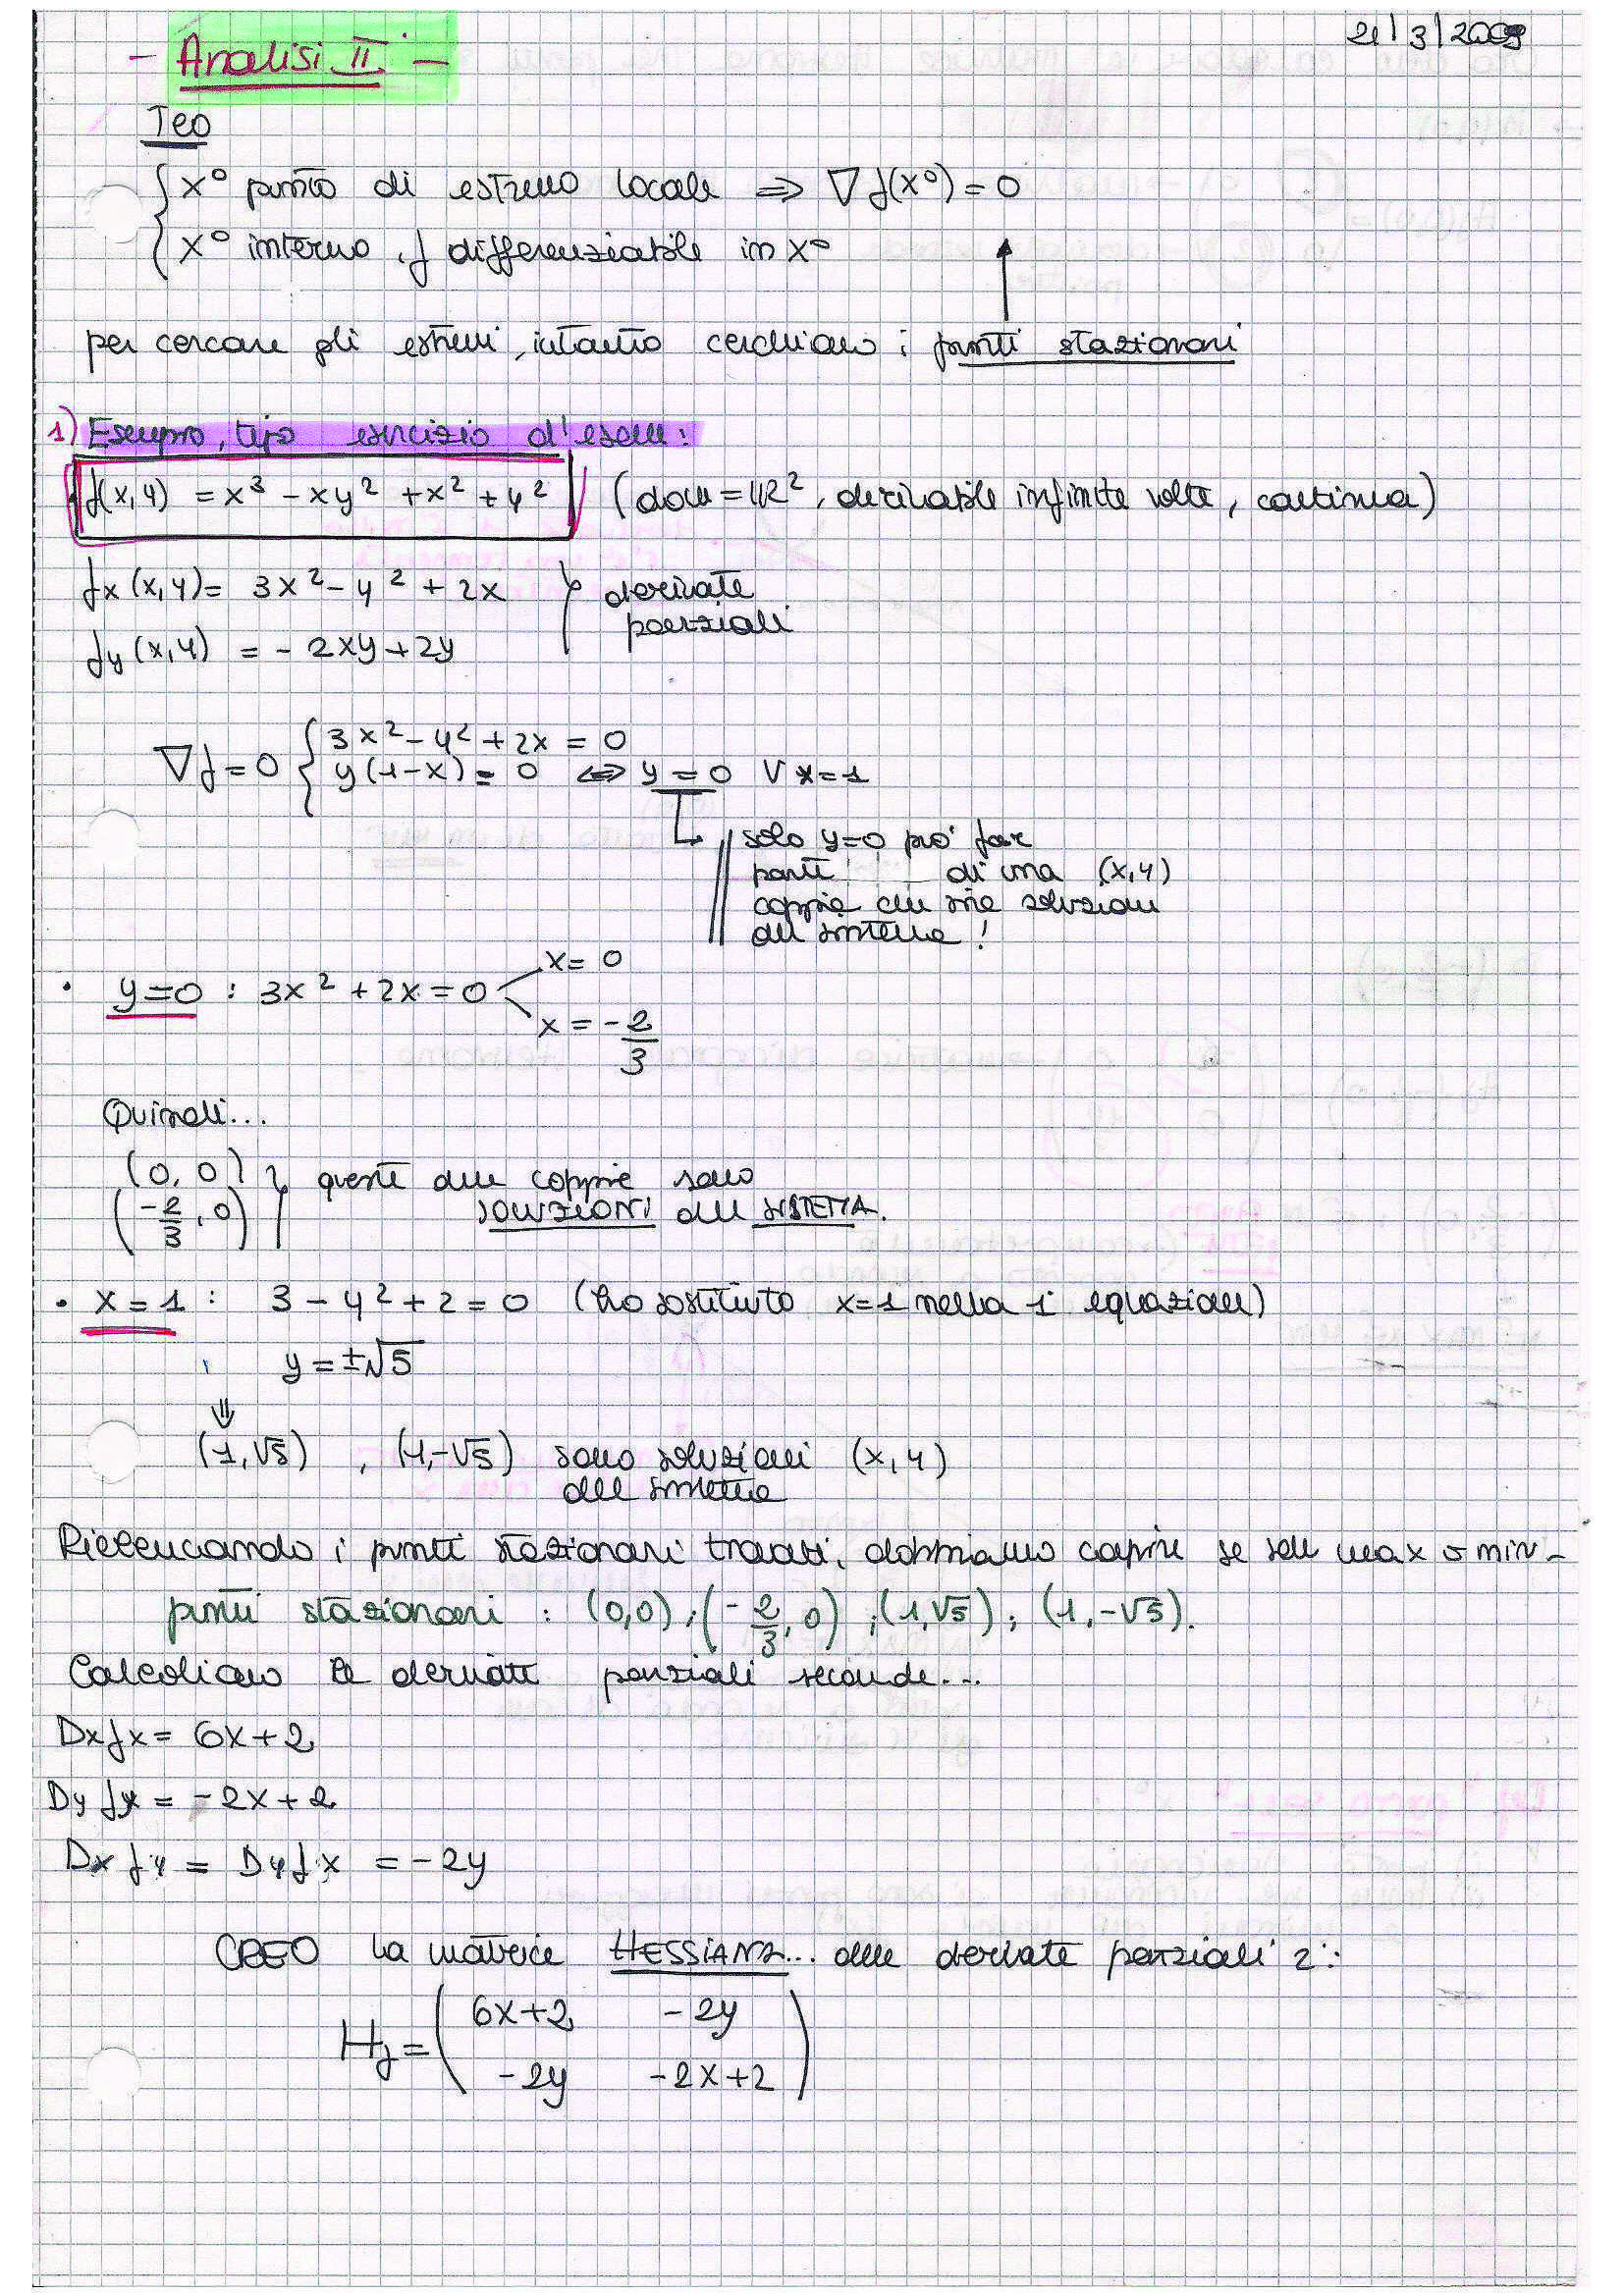 - Analisi II -
21/3/2009
Teo
{ x° punto di estremo locale ⇒ ∇f(x°) = 0
{ x° interno, f differenziabile in x°
per cercare gli estremi, intanto cerchiamo i punti stazionari
1) Esempio, tipo esercizio d'esame:
f(x,y) = x³ - xy² + x² + y² (dom = ℝ², derivabile infinite volte, continua)
fx(x,y) = 3x² - y² + 2x } derivate
parziali
fy(x,y) = - 2xy + 2y
∇f = 0 { 3x² - y² + 2x = 0
y(1-x) = 0 ⇔ y = 0 ∨ x = 1
solo y=0 può far
parte di una (x,y)
coppia che sia soluzione
del sistema!
• y=0 : 3x² + 2x = 0
x = 0
x = -2/3
Quindi...
(0, 0) } queste due coppie sono
(-2/3, 0) SOLUZIONI del SISTEMA.
• x = 1 : 3 - y² + 2 = 0 (ho sostituito x=1 nella 1ª equazione)
y = ±√5
⇓
(1, √5) , (1, -√5) sono soluzioni (x, y)
del sistema
Rielencando i punti stazionari trovati, dobbiamo capire se sono max o min -
punti stazionari : (0,0) ; (-2/3, 0) ; (1, √5) ; (1, -√5).
Calcoliamo le derivate parziali seconde...
Dx fx = 6x + 2
Dy fy = -2x + 2
Dx fy = Dy fx = -2y
CREO la matrice HESSIANA... delle derivate parziali 2ᵉ:
Hf = ( 6x+2 -2y
-2y -2x+2 )